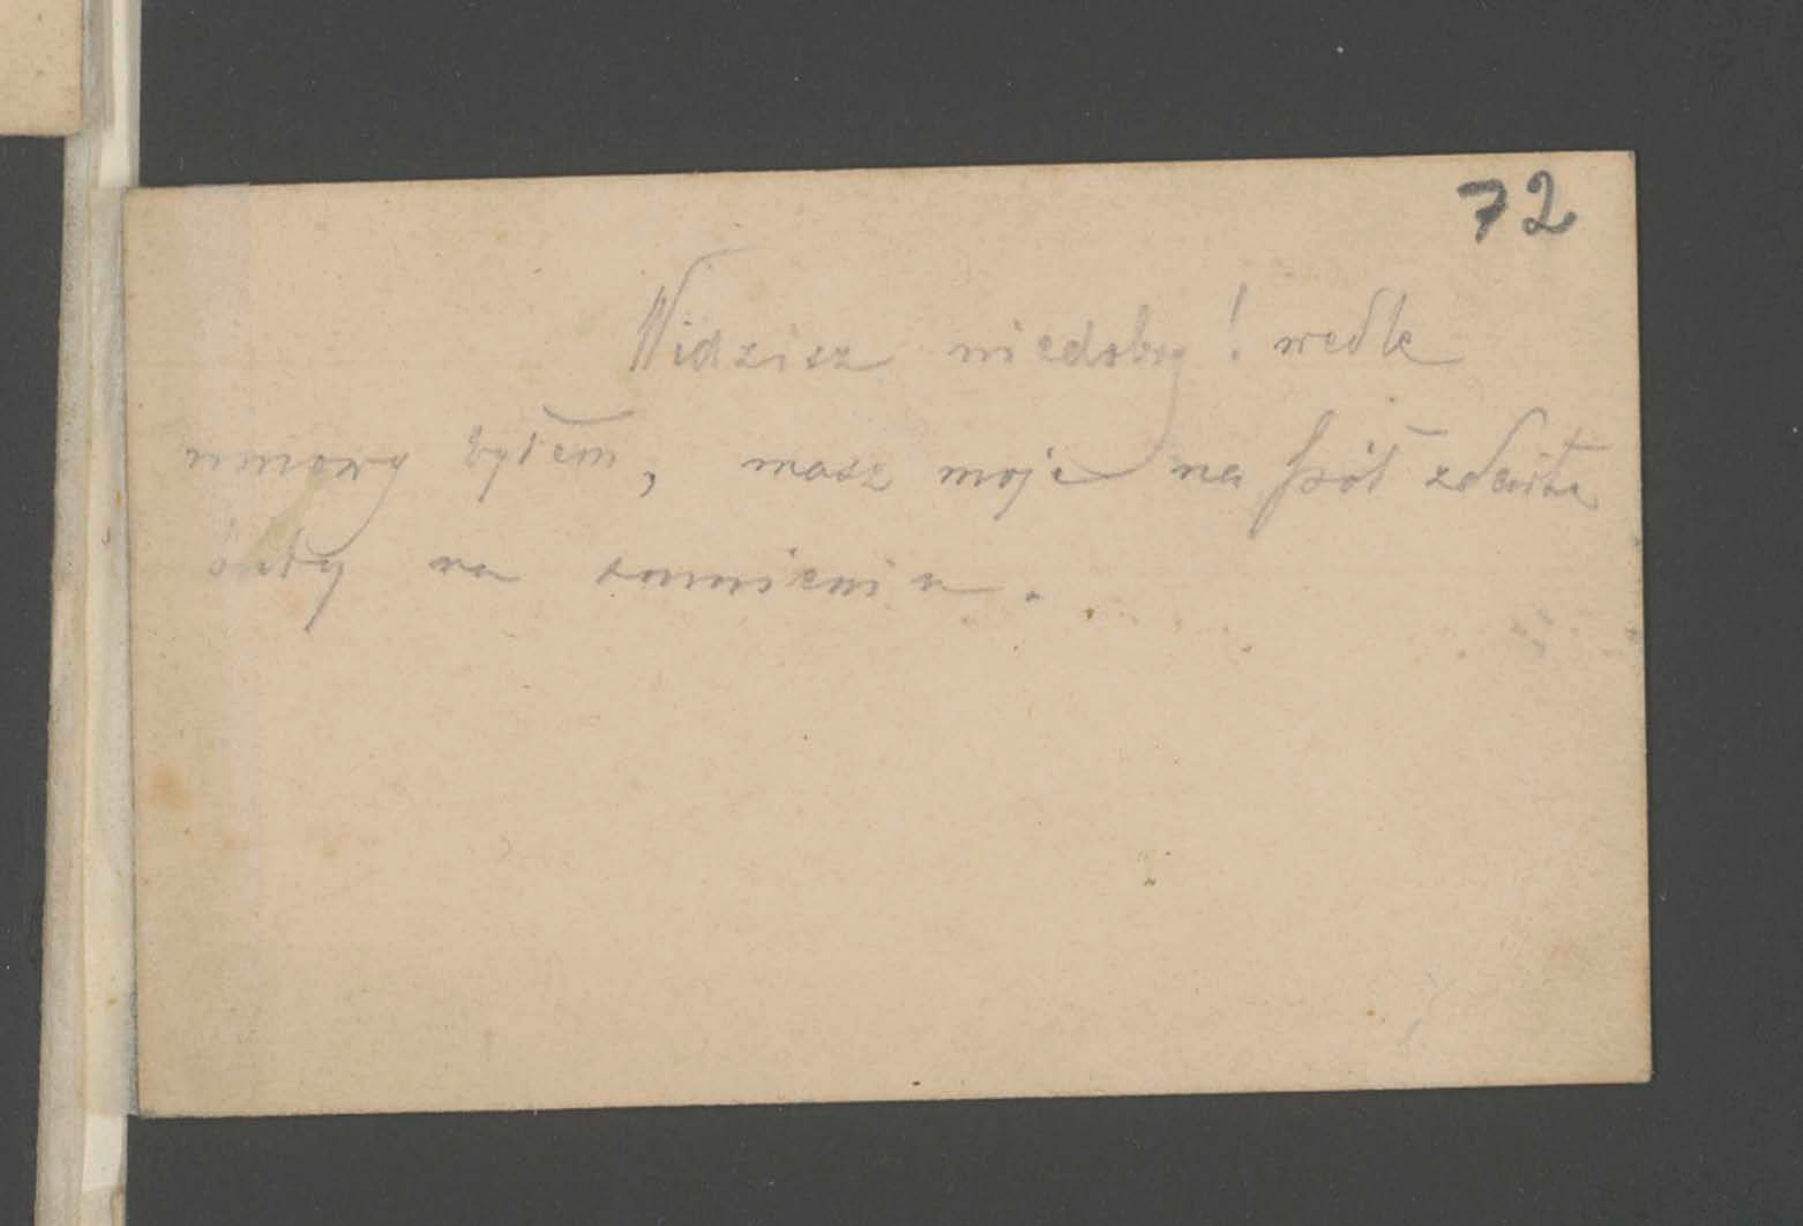 72
Widzisz niedobry! wedle
umowy byłem, masz moje na pół zdarte
buty na sumieniu.